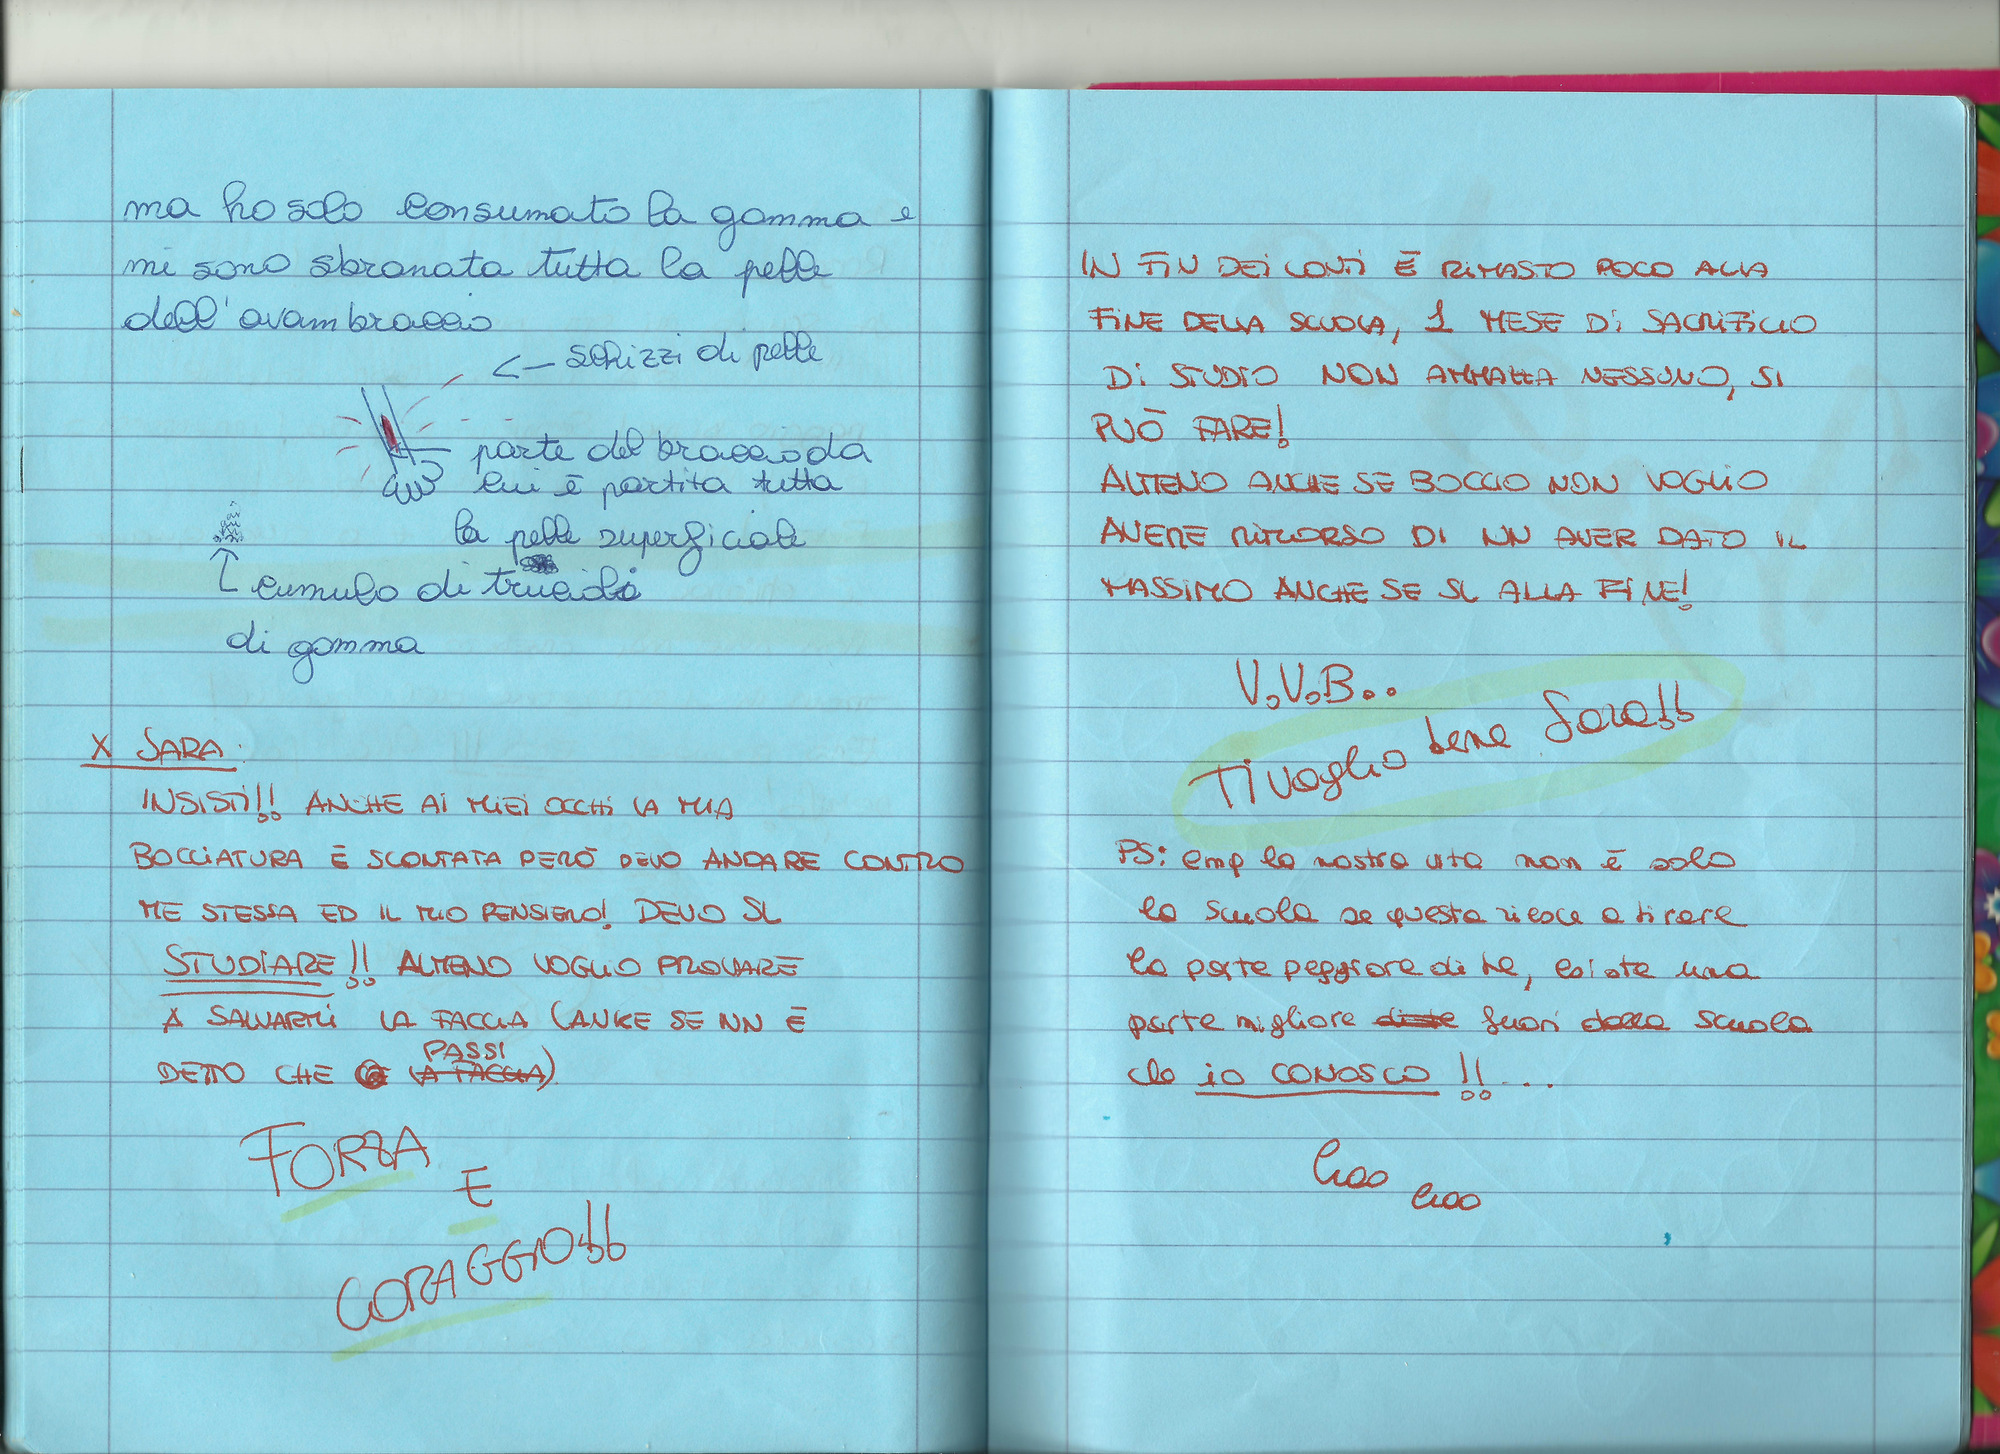 ma ho solo consumato la gomma e
mi sono sbranata tutta la pelle
dell'avambraccio
<— schizzi di pelle
parte del braccio da
cui è partita tutta
la pelle superficiale
cumulo di trucioli
di gomma
X SARA:
INSISTI!! ANCHE AI MIEI OCCHI LA MIA
BOCCIATURA È SCONTATA PERÒ DEVO ANDARE CONTRO
ME STESSA ED IL MIO PENSIERO! DEVO SL
STUDIARE!! ALMENO VOGLIO PROVARE
A SALVARMI LA FACCIA (ANKE SE NN È
DETTO CHE PASSI LA FACCIA)
FORZA
E
CORAGGIO!!
IN FIN DEI CONTI È RIMASTO POCO ALLA
FINE DELLA SCUOLA, 1 MESE DI SACRIFICIO
DI STUDIO NON AMMAZZA NESSUNO, SI
PUÒ FARE!
ALMENO ANCHE SE BOCCIO NON VOGLIO
AVERE RIMORSO DI NN AVER DATO IL
MASSIMO ANCHE SE SL ALLA FINE!
V.V.B..
TI voglio bene Sara!!
PS: cmq la nostra vita non è solo
la scuola se questa riesce a tirare
la parte peggiore di te, esiste una
parte migliore fuori dalla scuola
che io CONOSCO!!...
Ciao
ciao